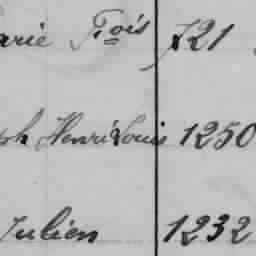 arie Fois 721
ph Henri Louis 1250
Julien 1232